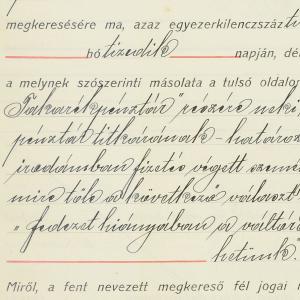 megkeresésére ma, azaz egyezerkilenczszáz ti
hó tizedik napján, dé
a melynek szószerinti másolata a tulsó oldalon
Takarékpénztár" részére neki
pénztár titkárának - határoz
irodámban fizetés végett szemé
mire tőle a következő választ
„fedezet hiányában a váltó
hetünk."
Miről, a fent nevezett megkereső fél jogai